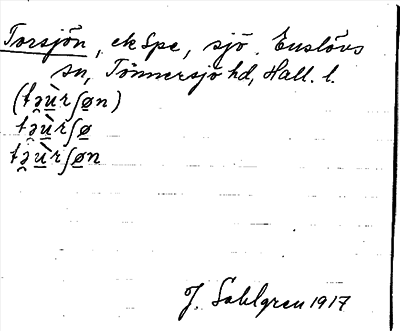 Torsjön, ek Spe, sjö. Enslövs
sn, Tönnersjö hd, Hall. l.
(tə̯ù̱rʃø̱n)
tə̯ù̱rʃø̱
tə̯ù̱rʃø̱n
J. Sahlgren 1917